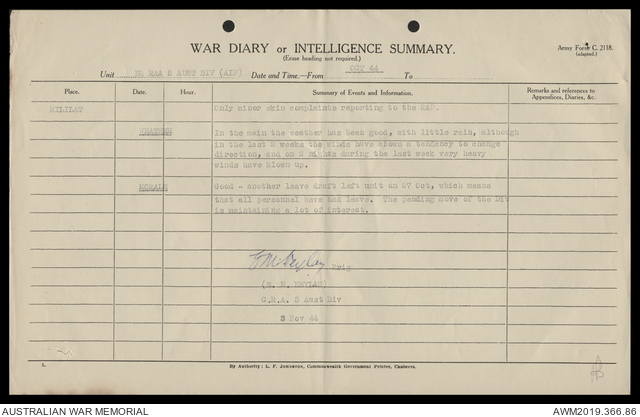 WAR DIARY or INTELLIGENCE SUMMARY.
(Erase heading not required.)
Army Form C. 2118.
(adapted.)
Unit HQ RAA 5 AUST DIV (AIF) Date and Time.—From OCT 44 To
Place. Date. Hour. Summary of Events and Information. Remarks and references to
Appendices, Diaries, &c.
MILILAT Only minor skin complaints reporting to the RAP.
WEATHER In the main the weather has been good, with little rain, although
in the last 2 weeks the winds have shown a tendency to change
direction, and on 2 nights during the last week very heavy
winds have blown up.
MORALE Good - another leave draft left unit on 27 Oct, which means
that all personnel have had leave. The pending move of the Div
is maintaining a lot of interest.
Brig
C.R.A. 5 Aust Div
3 Nov 44
L. By Authority: L. F. Johnston, Commonwealth Government Printer, Canberra.
AUSTRALIAN WAR MEMORIAL AWM2019.366.86